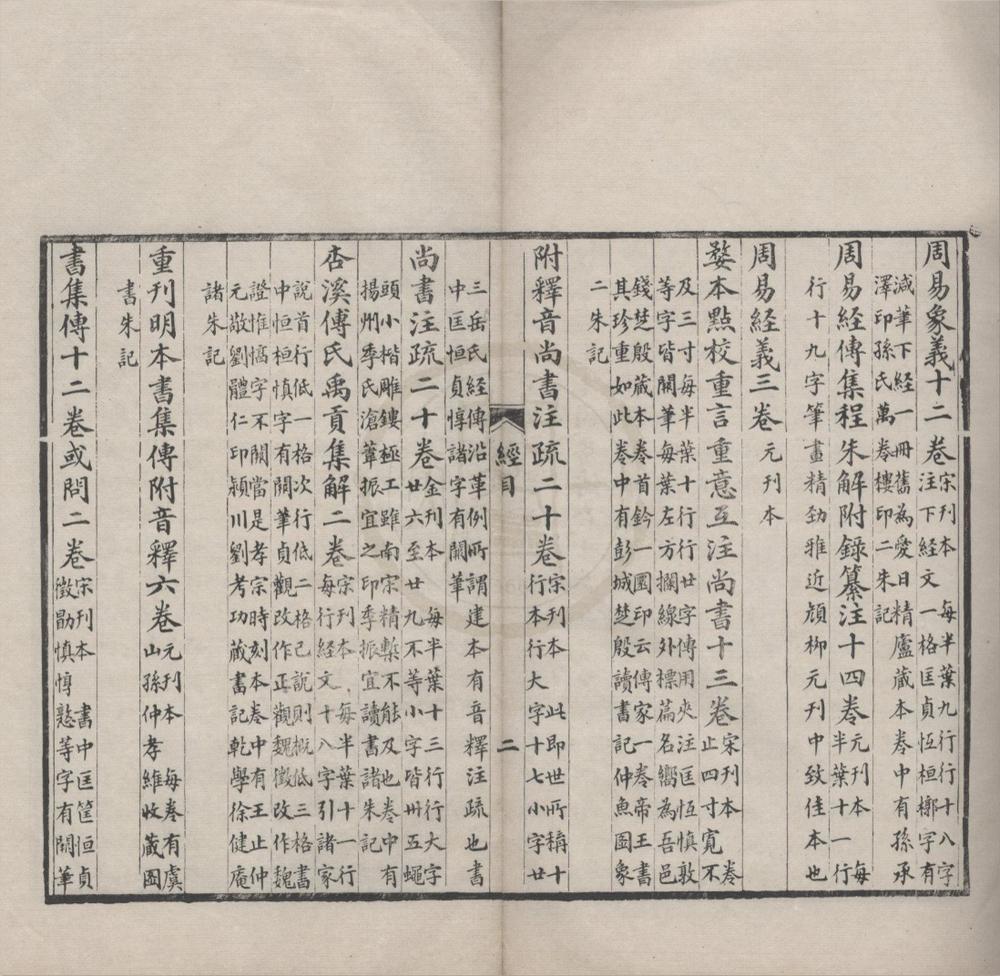 周易象義十二卷宋刊本每半葉九行行十八字
注下經文一格匡貞恆桓槨字有
減筆下經一冊舊為愛日精廬藏本卷中有孫承
澤印孫氏萬卷樓印二朱記
周易經傳集程朱解附錄纂注十四卷元刊本每
半葉十一行
行十九字筆畫精勁雅近顏柳元刊中致佳本也
周易經義三卷元刊本
婺本點校重言重意互注尚書十三卷宋刊本卷
止四寸寬不
及三寸每半葉十行行廿字傳用夾注匡恆慎敦
等字皆闕筆每葉左方攔線外標篇名嚮為吾邑
錢楚殷藏本卷首鈐一圓印云傳家一卷帝王書
其珍重如此卷中有彭城楚殷讀書記仲魚圖象
二朱記
附釋音尚書注疏二十卷宋刊本此即世所稱十
行本行大字十七小字廿
經目
二
三岳氏經傳沿革例所謂建本有音釋注疏也書
中匡恒貞惇諸字有闕筆
尚書注疏二十卷金刊本每半葉十三行行大字
廿六至廿九不等小字皆卅五蠅
頭小楷雕鏤極工雖南宋精槧不能及也卷中有
揚州季氏滄葦振宜之印季振宜讀書諸朱記
杏溪傅氏禹貢集解二卷宋刊本每半葉十一行
每行經文十八字引諸家
說首行低一格次行低二格己說則概低三格書
中恒桓慎字有闕筆貞觀改作正觀魏徵改作魏
證惟惇字不闕當是孝宗時刻本卷中有王止仲
元敬劉體仁印潁川劉考功藏書記乾學徐健庵
諸朱記
重刊明本書集傳附音釋六卷元刊本每卷有虞
山孫仲孝維收藏圖
書朱記
書集傳十二卷或問二卷宋刊本書中匡筐恒貞
徵勖慎惇慤等字有闕筆